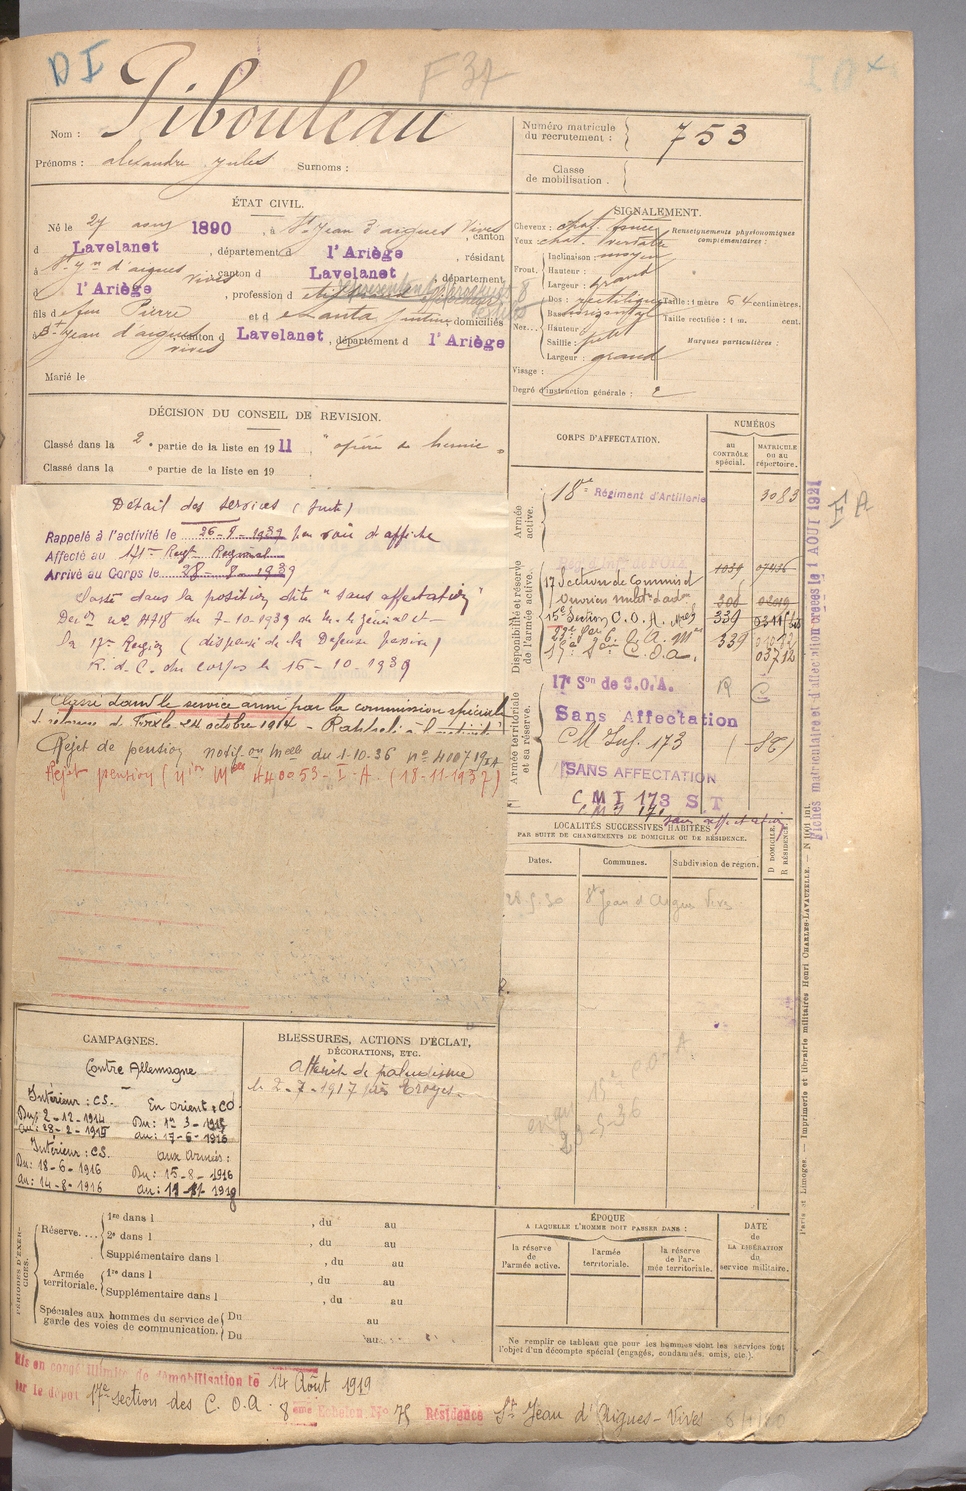 DI
F 37
Nom : Pibouleau
Prénoms : alexandre jules Surnoms :
Numéro matricule
du recrutement : 753
Classe
de mobilisation .
ÉTAT CIVIL.
Né le 27 1890 , à St Jean d'aigues Vives canton
d Lavelanet , département d l'Ariège , résidant
à St Jn d'aigues vives canton d Lavelanet , département
d l'Ariège , profession d
fils d e feu Pierre et d e Santa Justine domiciliés
à St Jean d'aigues vives , canton d Lavelanet , département d l'Ariège
Marié le
SIGNALEMENT.
Cheveux : chat. foncé
Yeux chat.
Front. Inclinaison : moyen
Hauteur :
Largeur : grand
Nez... Dos : rectiligne
Base horizontal
Hauteur
Saillie : petit
Largeur : grand
Visage :
Degré d'instruction générale : 2
Renseignements physionomiques
complémentaires :
Taille : 1 mètre 64 centimètres.
Taille rectifiée : 1 m. cent.
Marques particulières :
DÉCISION DU CONSEIL DE REVISION.
Classé dans la 2 e partie de la liste en 1911 . " opéré de hernie "
Classé dans la e partie de la liste en 19
Détail des services (suite)
Rappelé à l'activité le 26-8-1939 par voie d'affiche
Affecté au 171e Regt Regional
Arrivé au Corps le 28-8-1939
Passé dans la position dite "sans affectation"
Decon no 4718 du 7-10-1939 de M. le Général et
la 17e Region (dispensé de la Defense passive)
R. d. C. du corps le 16-10-1939
Classé dans le service armé par la commission spéciale
de réforme de Foix le 24 octobre 1914 - Rappelé à l'activité
Rejet de pension notifon Melle du 1-10-36 no 400719 IA
Rejet pension (non Melle 440053-I-A. (18-11-1937)
CORPS D'AFFECTATION.
NUMÉROS
au
CONTRÔLE
spécial.
MATRICULE
ou au
répertoire.
Armée
active.
18e Régiment d'Artillerie 3083
Disponibilité et réserve
de l'armée active.
1039
17 Section de Commis et
Ouvriers milres d'adon
15e Section C. O. A. 339
339
17e Son C. O. A. 03712
Armée territoriale
et sa réserve.
17e Son de C.O.A. R C
Sans Affectation
CM Inf. 173 (ST)
SANS AFFECTATION
C M I 173 S.T
C M I 171 sans affectation
Fiches matriculaire et d'affectation créées le 1 AOUT 1921
FA
LOCALITÉS SUCCESSIVES HABITÉES
PAR SUITE DE CHANGEMENTS DE DOMICILE OU DE RÉSIDENCE.
D DOMICILE.
R RÉSIDENCE.
Dates.
Communes.
Subdivision de région.
St Jean d'Aigues Vives
23-5-36
CAMPAGNES.
Contre Allemagne
Intérieur : CS.
Du : 2-12-1914
au : 28-2-1915
En Orient : CD
Du : 1er 3-1915
au : 17-6-1916
Intérieur : CS
Du : 18-6-1916
au : 14-8-1916
aux Armées :
Du : 15-8-1916
au : 11-11-1918
BLESSURES, ACTIONS D'ÉCLAT,
DÉCORATIONS, ETC.
Atteint de paludisme
le 2-7-1917 près Troyes
PÉRIODES D'EXERCICES.
Réserve....
1re dans l , du au
2e dans l , du au
Supplémentaire dans l , du au
Armée
territoriale.
1re dans l , du au
Supplémentaire dans l , du au
Spéciales aux hommes du service de
garde des voies de communication.
Du au
Du au
ÉPOQUE
A LAQUELLE L'HOMME DOIT PASSER DANS :
la réserve
de
l'armée active.
l'armée
territoriale.
la réserve
de l'ar-
mée territoriale.
DATE
de
LA LIBÉRATION
du
service militaire.
Ne remplir ce tableau que pour les hommes dont les services font
l'objet d'un décompte spécial (engagés, condamnés, omis, etc.).
Paris et Limoges. — Imprimerie et librairie militaires Henri CHARLES-LAVAUZELLE.
Mis en congé illimité de démobilisation le 14 Août 1919
par le dépôt 17e section des C. O. A. 8eme Echelon No 75 Résidence St Jean d'Aigues-Vives